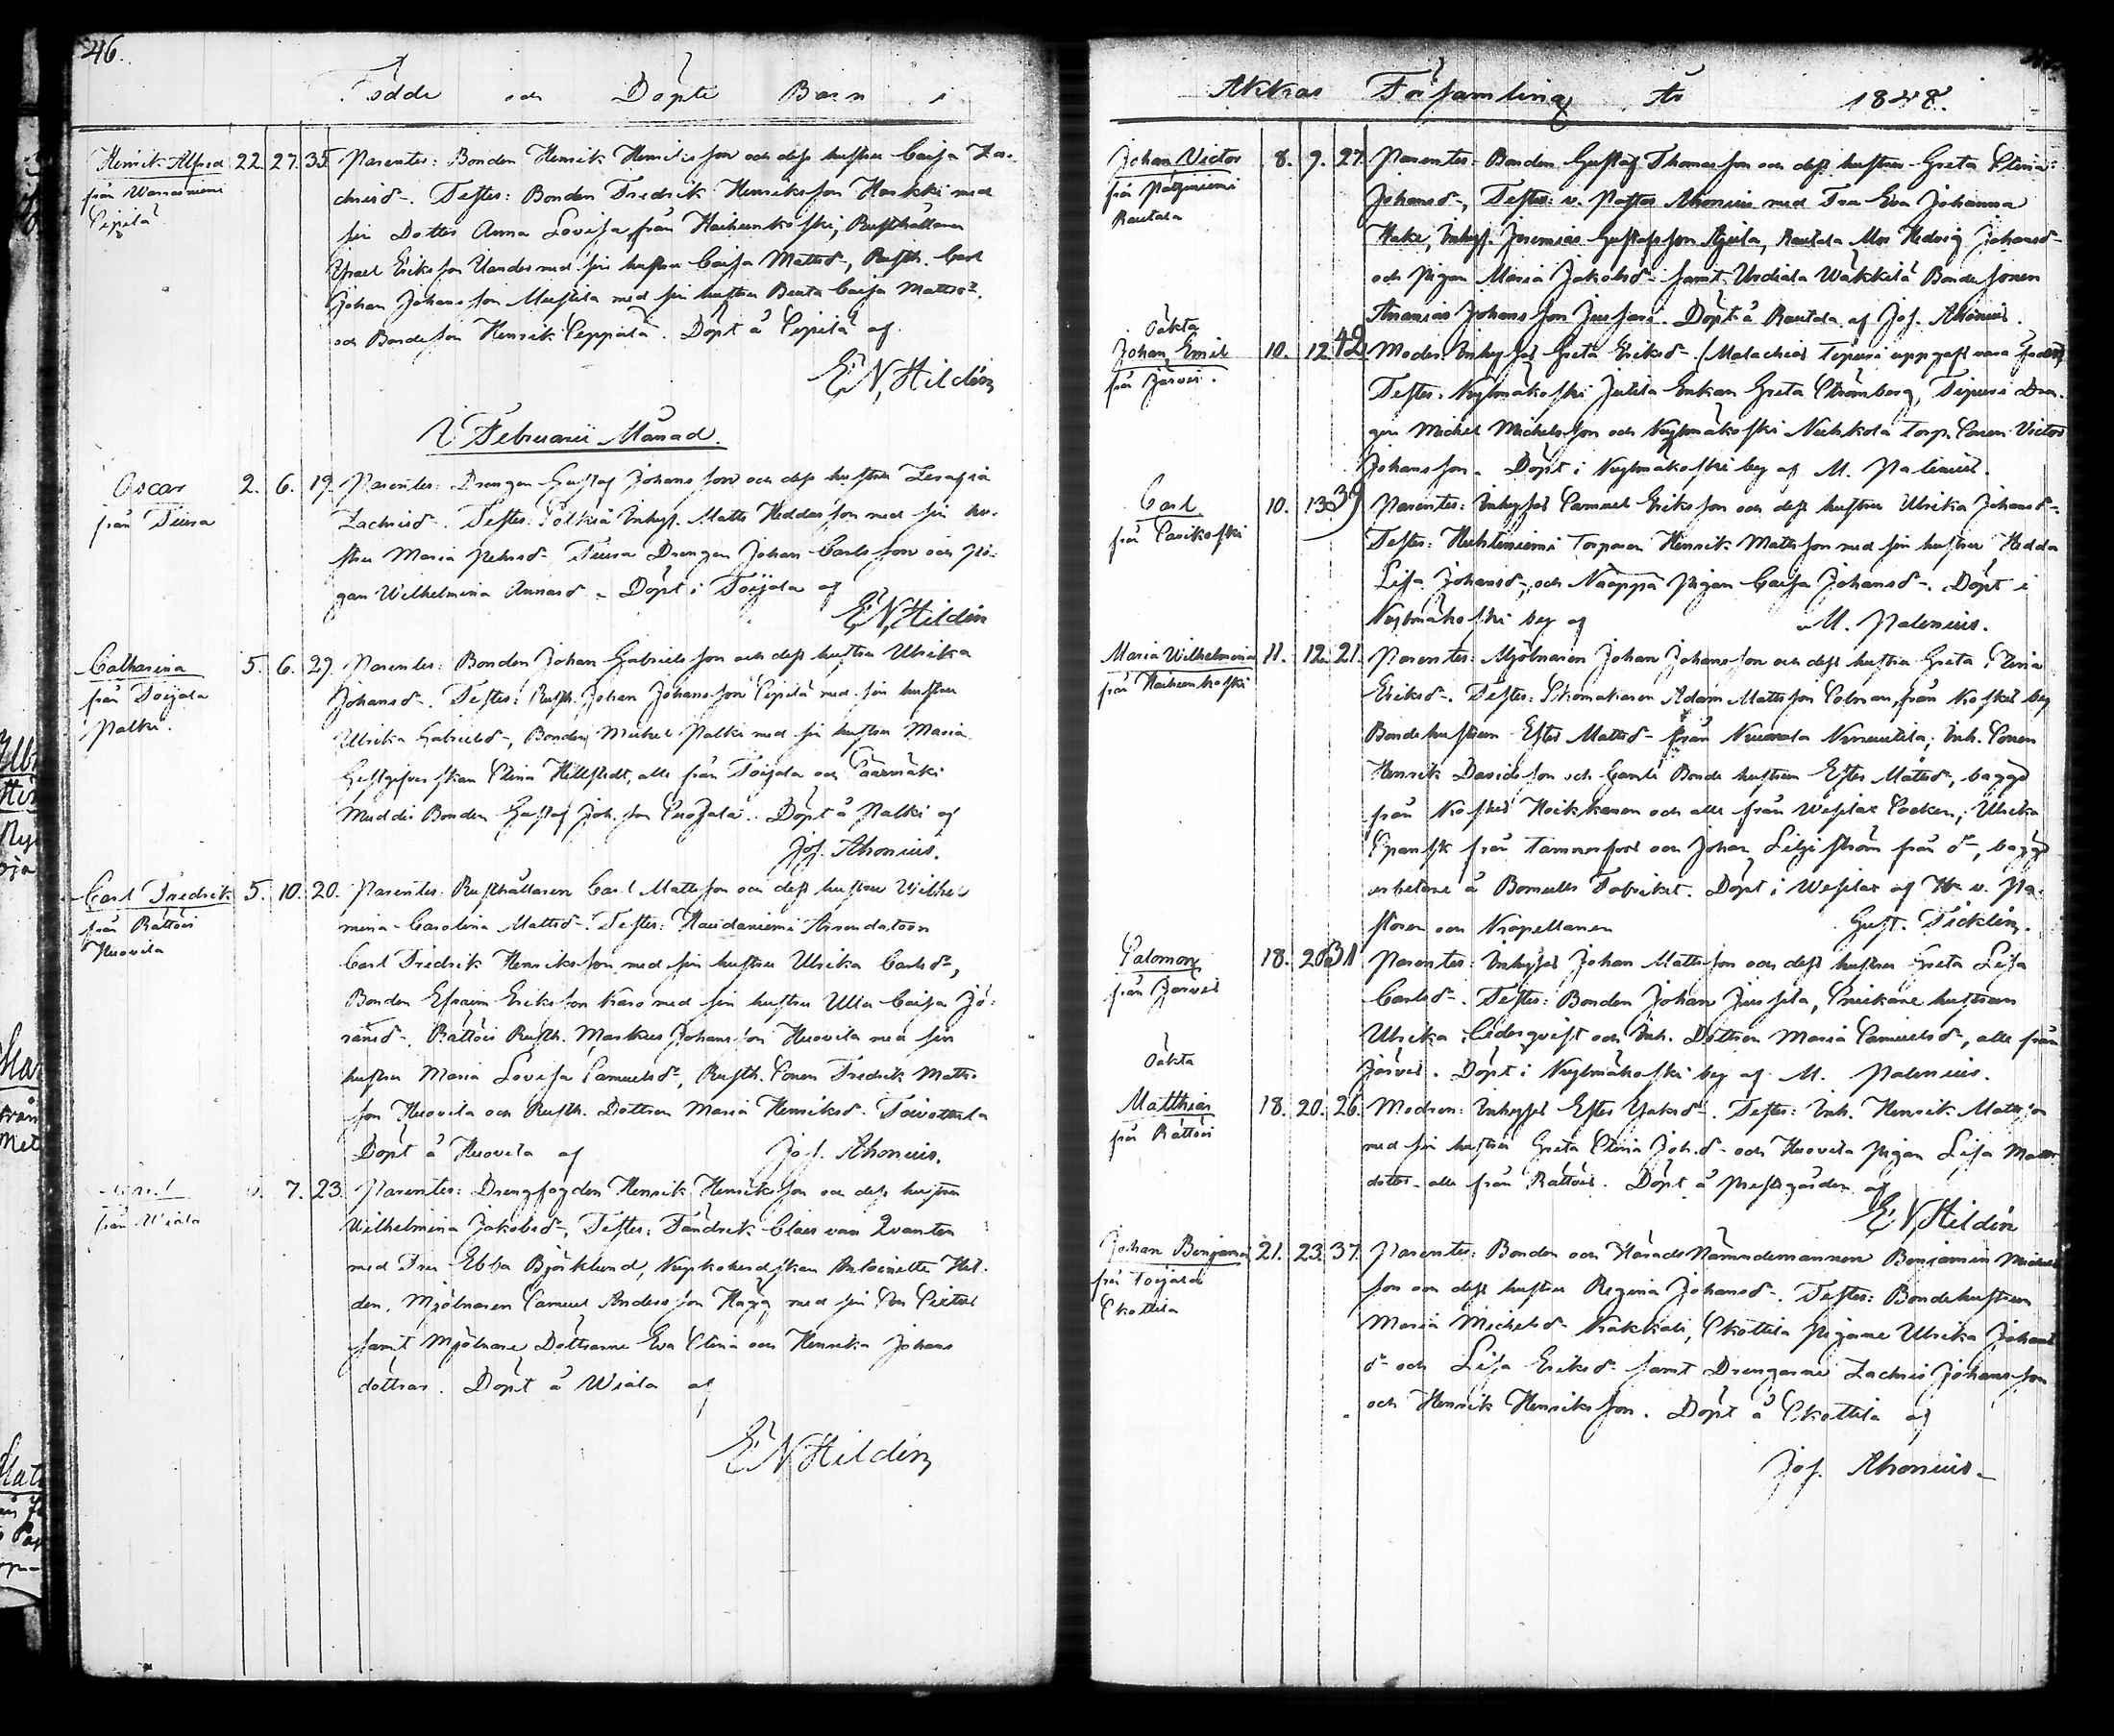 46.
Födde och Döpte Barn i
Henrik Alfred 22. 27. 35. Parenter: Bonden Henrik Henriksson och dess hustru Caisa Za-
från Warrasniemi chrisd-. Testes: Bonden Fredrik Henriksson Harkki med
Sipilä sin Dotter Anna Lovisa från Haihunkoski, Rusthållaren
Israel Eriksson Uander med sin hustru Caisa Mattsd-, Rusth. Carl
Johan Johansson Mustila med sin hustru Beata Caisa Mattsd-.
och Bondeson Henrik Seppälä. Döpt å Sipilä af
E N Hildén
I Februarii Månad.
Oscar 2. 6. 19. Parenter: Drengen Gustaf Johansson och dess hustru Serafia
från Tiura Zachrisd-. Testes: Inhys. Matts Heddasson med sin hu-
stru Maria Pehrsd- Tiura Drengen Johan Carlsson och pi-
gan Wilhelmina Annasd-. Döpt i Toijala af
E N Hildén
Catharina 5. 6. 29. Parenter: Bonden Johan Gabrielsson och dess hustru Ulrika
från Toijala Johansd-. Testes: Rusth. Johan Johansson Sipilä med sin hustru
Palki. Ulrika Gabrielsd-, Bonden Michel Palki med sin hustru Maria
Gestgifverskan Stina Hellstedt, alla från Toijala och Säärmäki
Muddi Bonden Gustaf Joh.son. Döpt å Palki af
Jos. Ahonius.
Carl Fredrik 5. 10. 20. Parenter: Rusthållaren Carl Mattsson och dess hustru Wilhel
från Rättöi mina Carolina Mattsd-. Testes: Haudaniemi Arrendatorn
Huovila Carl Fredrik Henriksson med sin hustru Ulrika Carlsd-,
Bonden Efraim Eriksson Karo med sin hustru Ulla Caisa Jö-
ransd-. Rättöis Rusth. Markus Johansson Huovila med sin
hustru Maria Lovisa Samuelsd-, Rusth. Sonen Fredrik Matts-
son Huovila och Rusth. Dottren Maria Henriksd- Toivottula
Döpt å Huovila af Jos. Ahonius.
7. 23. Parenter: Drengfogden Henrik Henriksson och dess hustru
från Wiala Wilhelmina Jakobsd-, Testes: Fändrik Claes von Qvanten
med Fru Ebba Björklund, Antoinette Hil-
den, Mjölnaren Samuel Andersson Hagg med sin
samt Mjölnare Döttrarne Eva Stina och Henrika Johans
döttrar. Döpt å Wiala af
E N Hildén
Akkas Församling År 1848.
Johan Victor 8. 9. 27. Parenter: Bonden Gustaf Thomasson och dess hustru Greta Stina
från Pätsiniemi Johansd-, Testes: v. Pastor Ahonius med Fru Eva Johanna
Rautala Hake, Inhys. Jeremias Gustafsson Ajula, Rautala Mor Hedvig Johansd-
och Pigan Maria Jakobsd- samt Urdiala Wäkkilä Bondesonen
Ananias Johansson Jussari. Döpt å Rautala af Jos. Ahonius.
Oäkta
Johan Emil 10. 12. 42. Moder: Inhyses Greta Eriksd- (Malachias Tipuri uppgafs vara fader)
från Jarvis. Testes: Kylmäkoski Jutila Enkan Greta Strömberg, Tipuri Dren-
gen Michel Michelsson och Kylmäkoski Nuhkola Torp. Sonen Victor
Johansson. Döpt i Kylmäkoski by af M. Palenius.
Carl 10. 13. 39 Parenter: Inhyses Samuel Eriksson och dess hustru Ulrika Johansd-
från Sarikoski Testes: Huhtiniemi Torparen Henrik Mattsson med sin hustru Hedda
Lisa Johansd-, och Nääppä pigan Caisa Johansd-. Döpt i
Kylmäkoski by af M. Palenius.
Maria Wilhelmina 11. 12. 21. Parenter: Mjölnaren Johan Johansson och dess hustru Greta Stina
från Haihunkoski Eriksd-. Testes: Skomakaren Adam Mattsson Salman, från Koskis by
Bondehustrun Ester Mattsd- från, Inh. Sonen
Henrik Davidsson och Gamle Bonde hustrun Ester Mattsd, bägge
från Koskis Hoikkanen och alla från Wesilax Socken, Ulrika
Spansk från Tammerfors och Johan Liljeström från d-, bägge
arbetare å Bomulls Fabriket. Döpt i Wesilax af Hr v. Pa-
storen och Kapellanen Gust. Ticklén.
Salomon 18. 20. 31 Parenter: Inhyses Johan Mattsson och dess hustru Greta Lisa
från Jarvis Carlsd-. Testes: Bonden Johan Jussila, Snickare hustrun
Ulrika Cederqvist och Inh. Dottren Maria Samuelsd-, alla från
Oäkta Järvis. Döpt i Kylmäkoski by af M. Palenius.
Matthias 18. 20. 26. Modren: Inhyses Ester Isaksd-. Testes: Inh. Henrik Mattsson
från Rättöi med sin hustru Greta Stina Joh.d- och Huovila Pigan Lisa Matts
dotter alla från Rättöis. Döpt å Prestgården af
E N Hildén
Johan Benjamin 21. 23. 37. Parenter: Bonden och Härads Nämndemannen Benjamin Michels
från Toijala son och dess hustru Regina Johansd-. Testes: Bondehustrun
Skottila Maria Michelsd- Kakkali, Skottila Pigorne Ulrika Johans
d- och Lisa Eriksd- samt Drengarne Zachris Johansson
och Henrik Henriksson. Döpt å Skottila af
Jos. Ahonius.